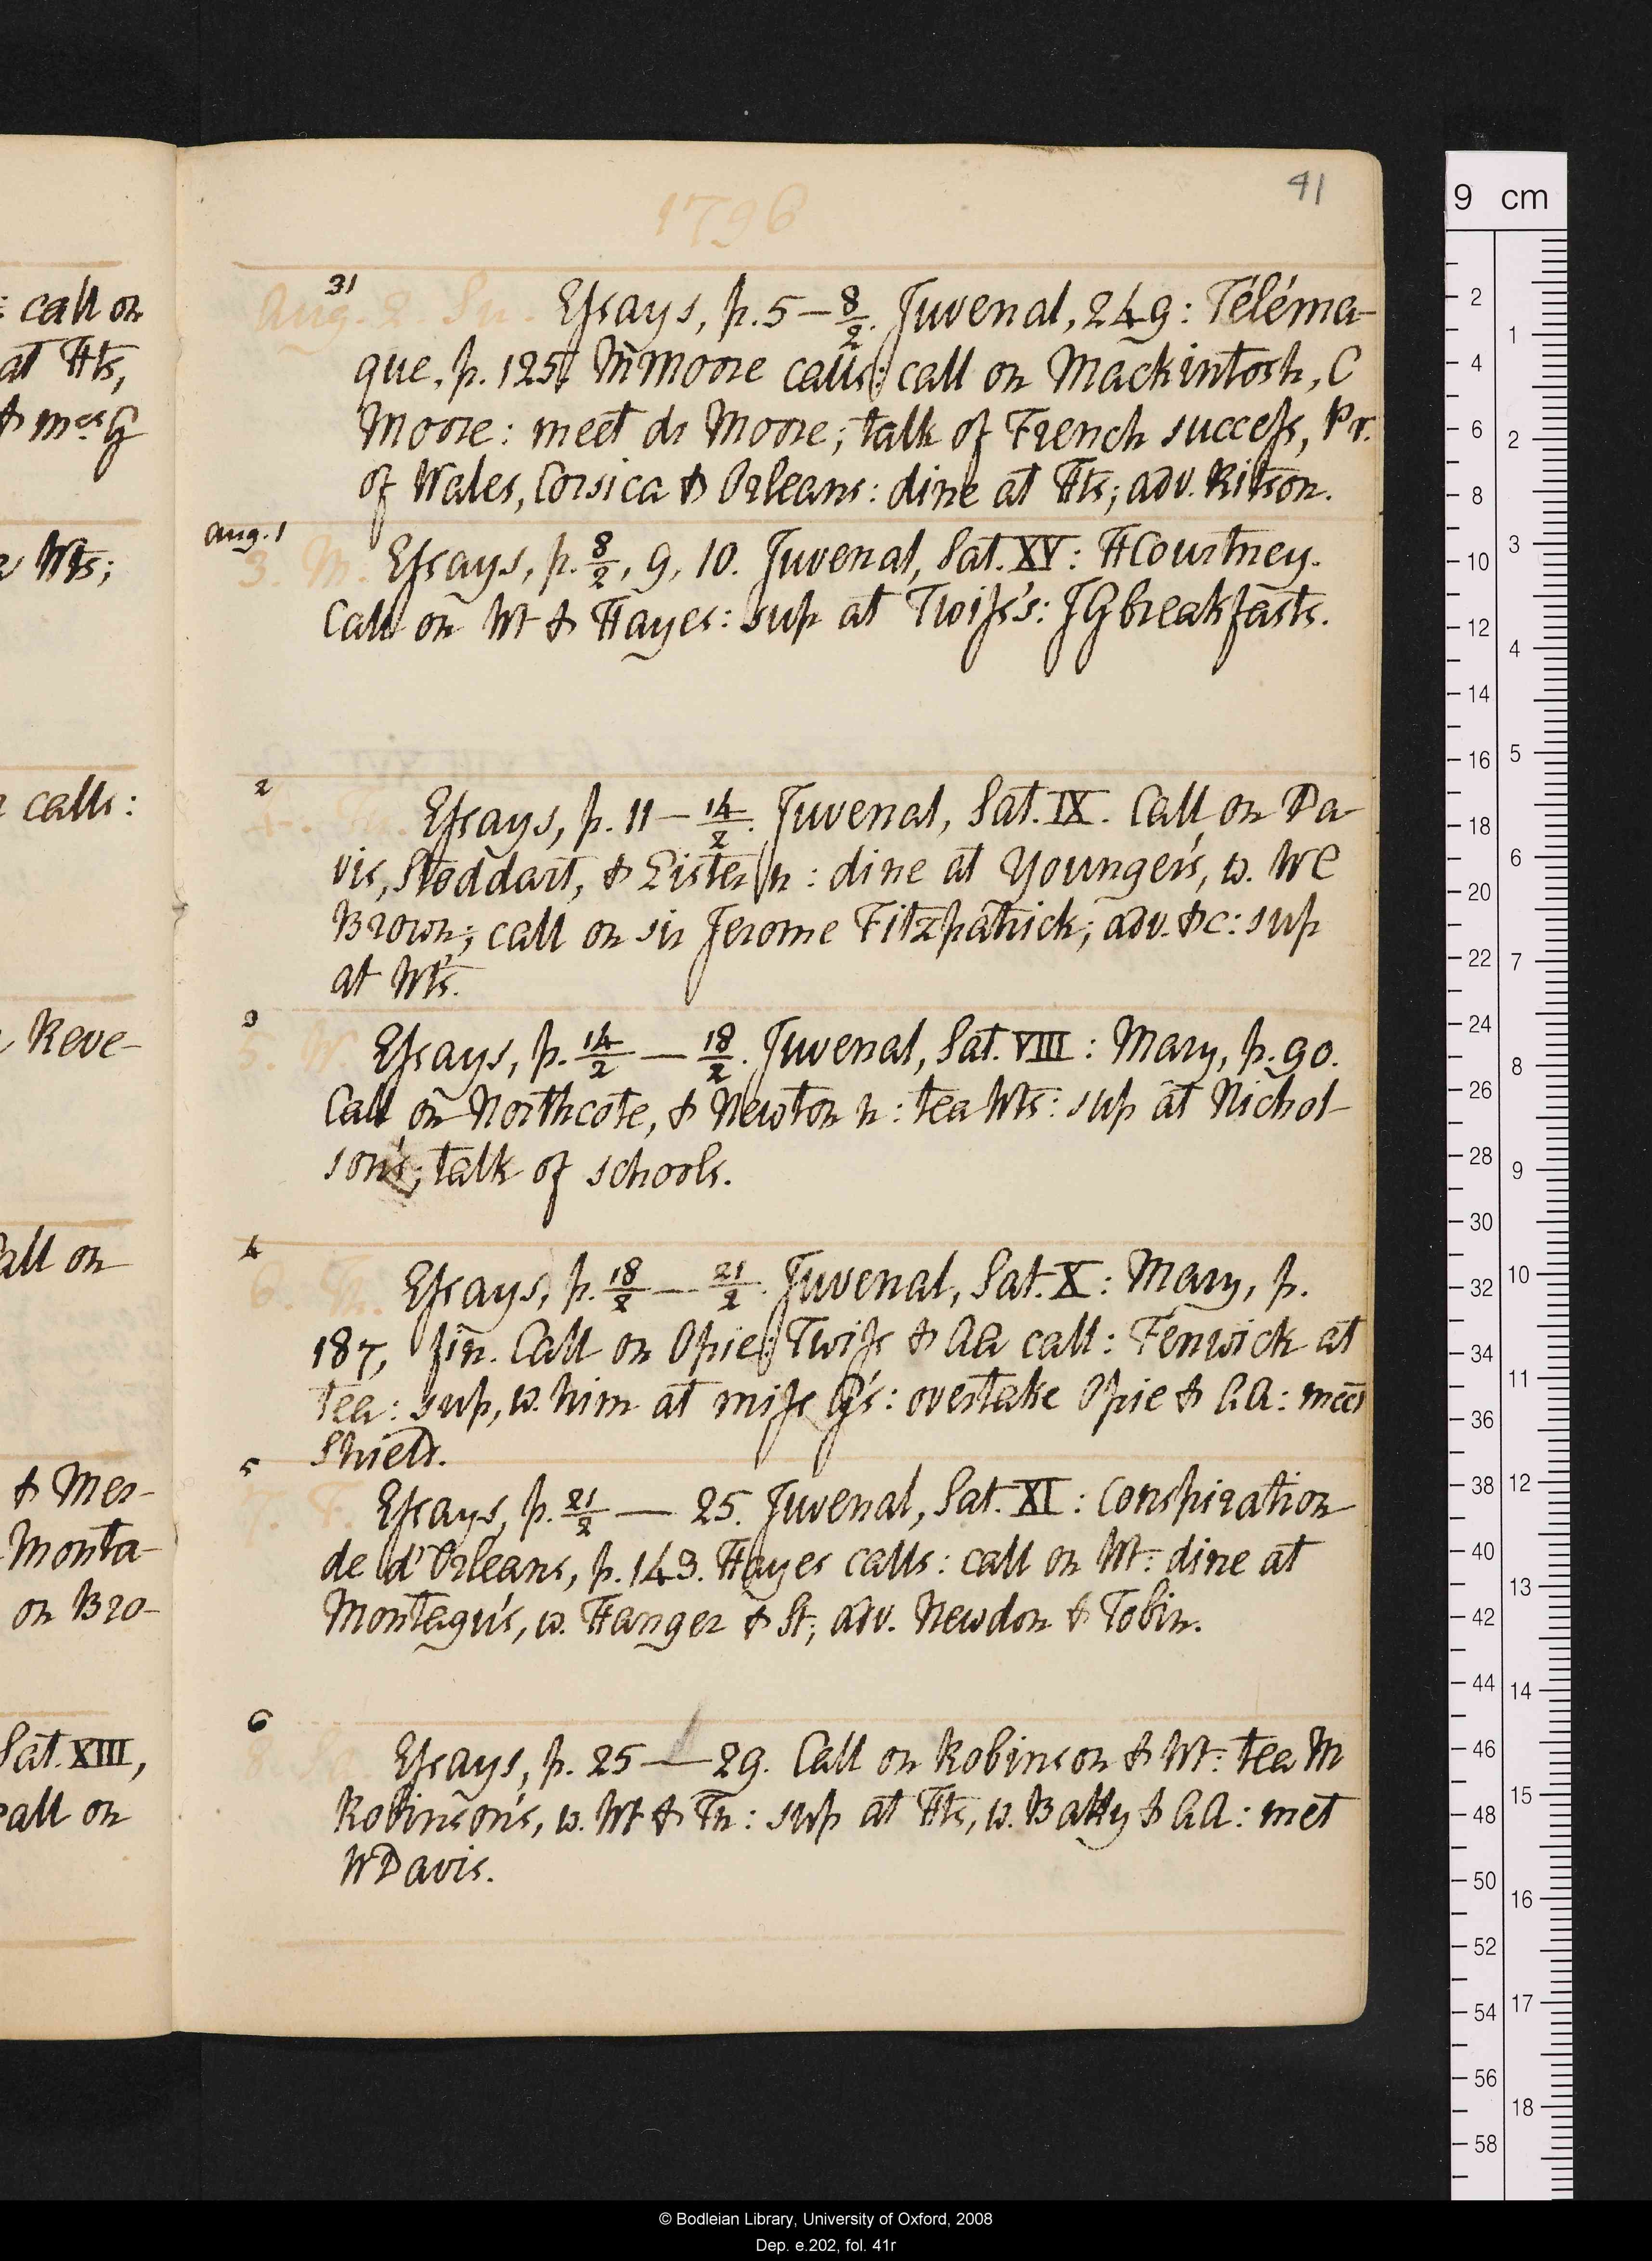 41
1796
31
Aug. 2 Su. Eſsays, p. 5 — 8/2. Juvenal, 249: Téléma-
que, p. 125. M Moore calls: call on Mackintosh, C
Moore: meet dr Moore; talk of French succeſs, Pr.
of Wales, Corsica & Orleans: dine at Hts; adv. Ritson.
Aug. 1
3. M. Eſsays, p. 8/2, 9, 10. Juvenal, Sat. XV: H Courtney.
Call on Wt & Hayes: sup at Twiſs's: JG breakfasts.
2
4. Tu. Eſsays, p. 11 — 14/2. Juvenal, Sat. IX. Call on Da-
vis, Stoddart, & Lister n: dine at Younger's, w. WC
Brown; call on sir Jerome Fitzpatrick; adv. &c: sup
at Wt's.
3
5. W. Eſsays, p. 14/2 — 18/2. Juvenal, Sat. VIII: Mary, p. 90.
Call on Northcote, & Newton n: tea Wts: sup at Nichol-
son's; talk of schools.
4
6. Th. Eſsays, p. 18/2 — 21/2. Juvenal, Sat. X: Mary, p.
187, fin. Call on Opie: Twiſs & AA call: Fenwick at
tea: sup, w. him at miſs G's: overtake Opie & AA: meet
Shield.
5
7. F. Eſsays, p. 21/2 — 25. Juvenal, Sat. XI: Conspiration
de d'Orleans, p. 143. Hayes calls: call on Wt: dine at
Montagu's, w. Hanger & St; adv. Newdon & Tobin.
6
8. Sa. Eſsays, p. 25 — 29. Call on Robinson & Wt: tea M
Robinson's, w. Wt & Fn: sup at Hts, w. Batty & AA: met
W Davis.
: call on
at Hts,
& mrs G
Wts;
calls:
Reve-
Call on
& Mer-
Monta-
on Bro-
Sat. XIII,
call on
9 cm
2
4
6
8
10
12
14
16
18
20
22
24
26
28
30
32
34
36
38
40
42
44
46
48
50
52
54
56
58
1
2
3
4
5
6
7
8
9
10
11
12
13
14
15
16
17
18
© Bodleian Library, University of Oxford, 2008
Dep. e.202, fol. 41r